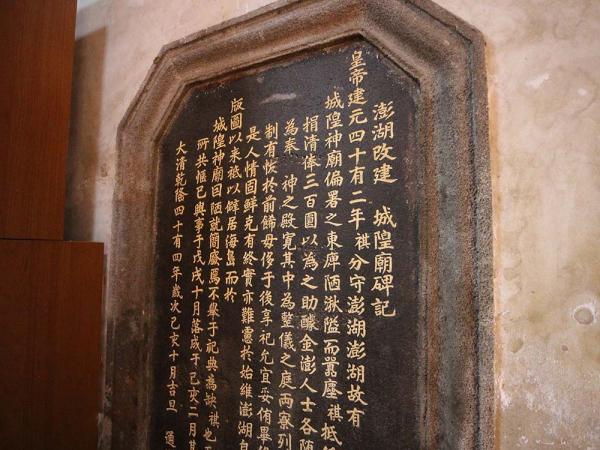 澎湖改建　城隍廟碑記
皇帝建元四十有二年祺分守澎湖澎湖故有
城隍神廟偏署之東庳陋湫隘而囂塵祺抵
捐清俸三百圓以為之助醵金澎人士各随
為奉　神之殿寬其中為整儀之庭兩寮列
制有恢於前飾毋侈于後享祀允宜妥侑畢
是人情固鮮克有終實亦難慮於始維澎湖自
版圖以来祗以僻居海島而於
城隍神廟因陋就簡廢焉不舉于祀典為缺祺也
所共愜已興事于戊戌十月落成于己亥二月其
大清乾隆四十有四年歲次己亥十月吉旦　通